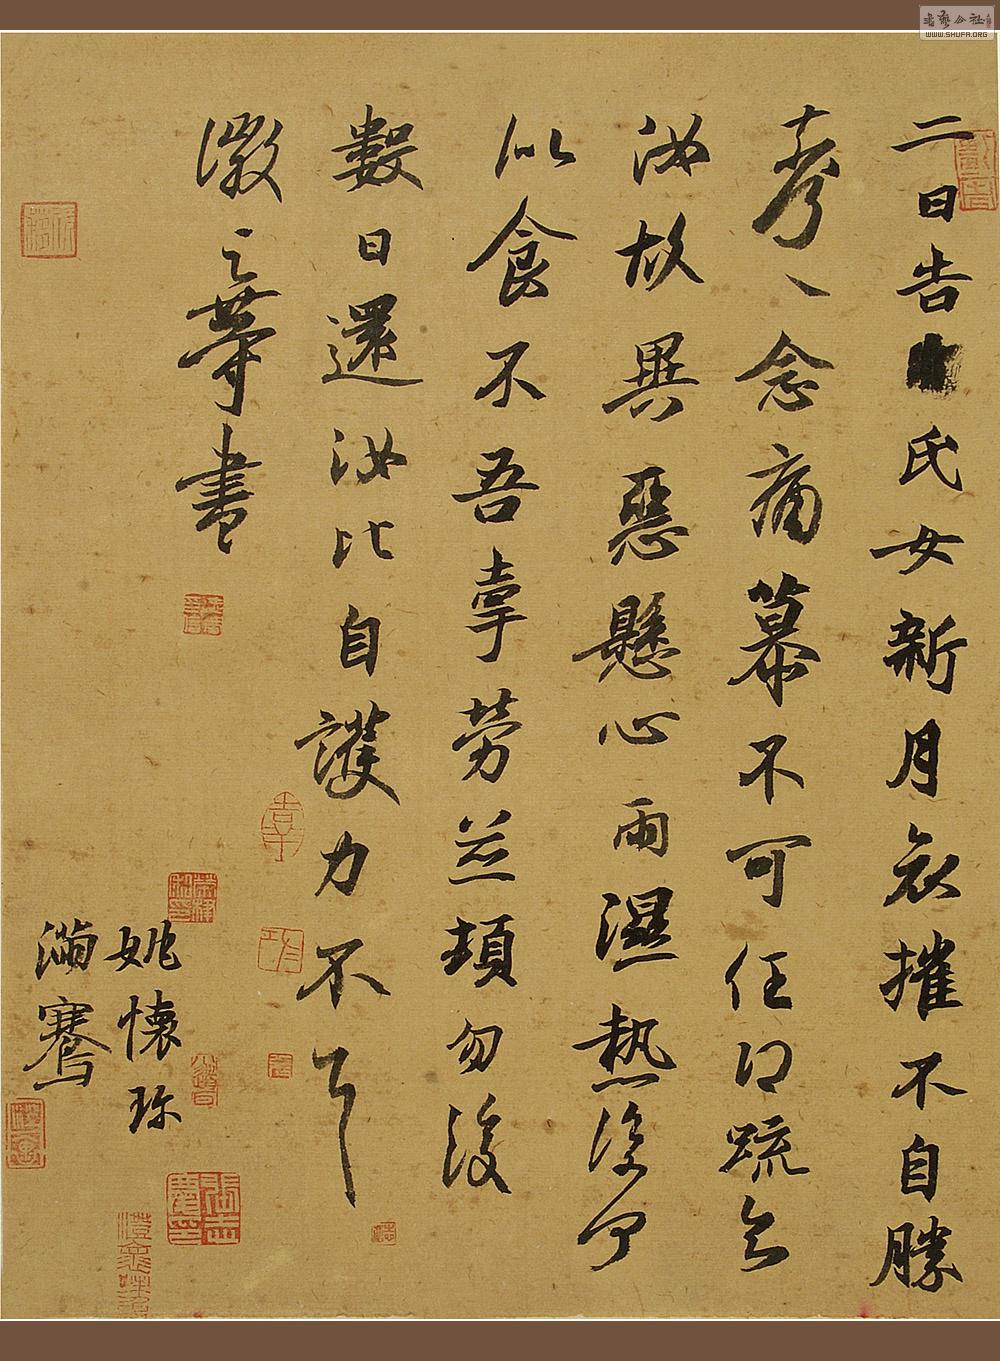 二日告氏女新月哀摧不自勝
奈何〻念痛慕不可任得疏知
汝故異惡懸心雨濕熱復何
似食不吾牽勞並頓勿復
數日還汝比自護力不
徽之等書
姚懷珍
滿騫
書藝公社
WWW.SHUFA.ORG